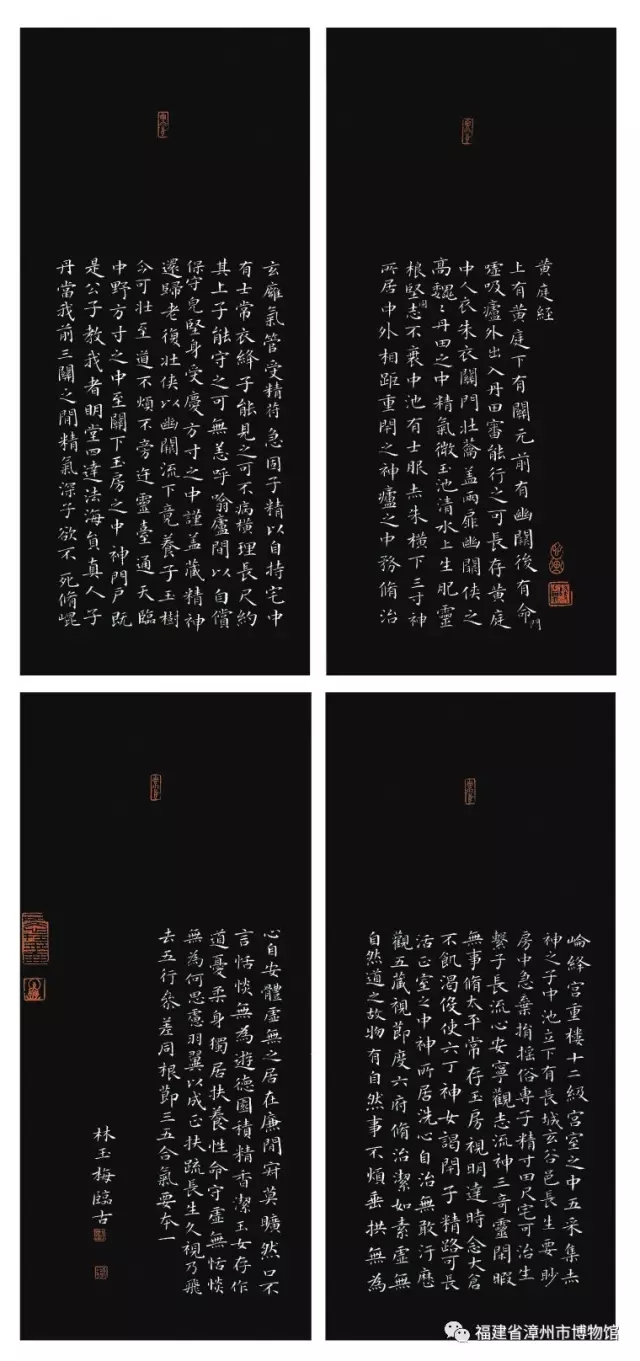 黃庭經
上有黃庭下有關元前有幽闕後有命門
噓吸廬外出入丹田審能行之可長存黃庭
中人衣朱衣關門壯蘥盖兩扉幽闕俠之
高魏〻丹田之中精氣微玉池清水上生肥靈
根堅志不衰中池有士服赤朱橫下三寸神
所居中外相距重閉之神廬之中務脩治
玄癰氣管受精符急固子精以自持宅中
有士常衣絳子能見之可不病橫理長尺約
其上子能守之可無恙呼噏廬間以自償
保守皃堅身受慶方寸之中謹盖藏精神
還歸老復壯俠以幽闕流下竟養子玉樹
令可壯至道不煩不旁迕靈臺通天臨
中野方寸之中至關下玉房之中神門戶既
是公子教我者明堂四達法海負真人子
丹當我前三關之間精氣深子欲不死脩崐
崘絳宮重樓十二級宮室之中五采集赤
神之子中池立下有長城玄谷邑長生要眇
房中急棄捐搖俗專子精寸田尺宅可治生
繫子長流心安寧觀志流神三奇靈閑暇
無事脩太平常存玉房視明達時念大倉
不飢渴役使六丁神女謁閉子精路可長
活正室之中神所居洗心自治無敢汙歷
觀五藏視節度六府脩治潔如素虛無
自然道之故物有自然事不煩垂拱無為
心自安體虛無之居在廉間寂莫曠然口不
言恬惔無為遊德園積精香潔玉女存作
道憂柔身獨居扶養性命守虛無恬惔
無為何思慮羽翼以成正扶疏長生久視乃飛
去五行參差同根節三五合氣要本一
林玉梅臨古
福建省漳州市博物馆